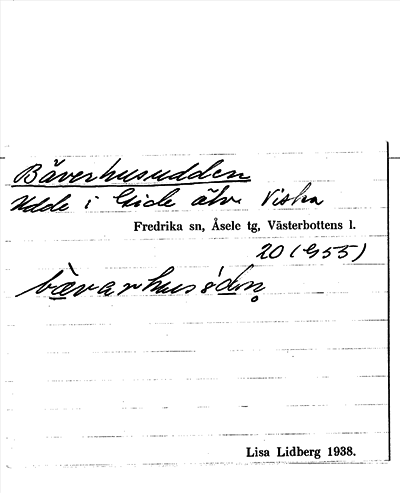 Bäverhusudden
Udde i Gide älv. Viska
Fredrika sn, Åsele tg, Västerbottens l.
20 (455)
bævarhusʹdn̥
Lisa Lidberg 1938.